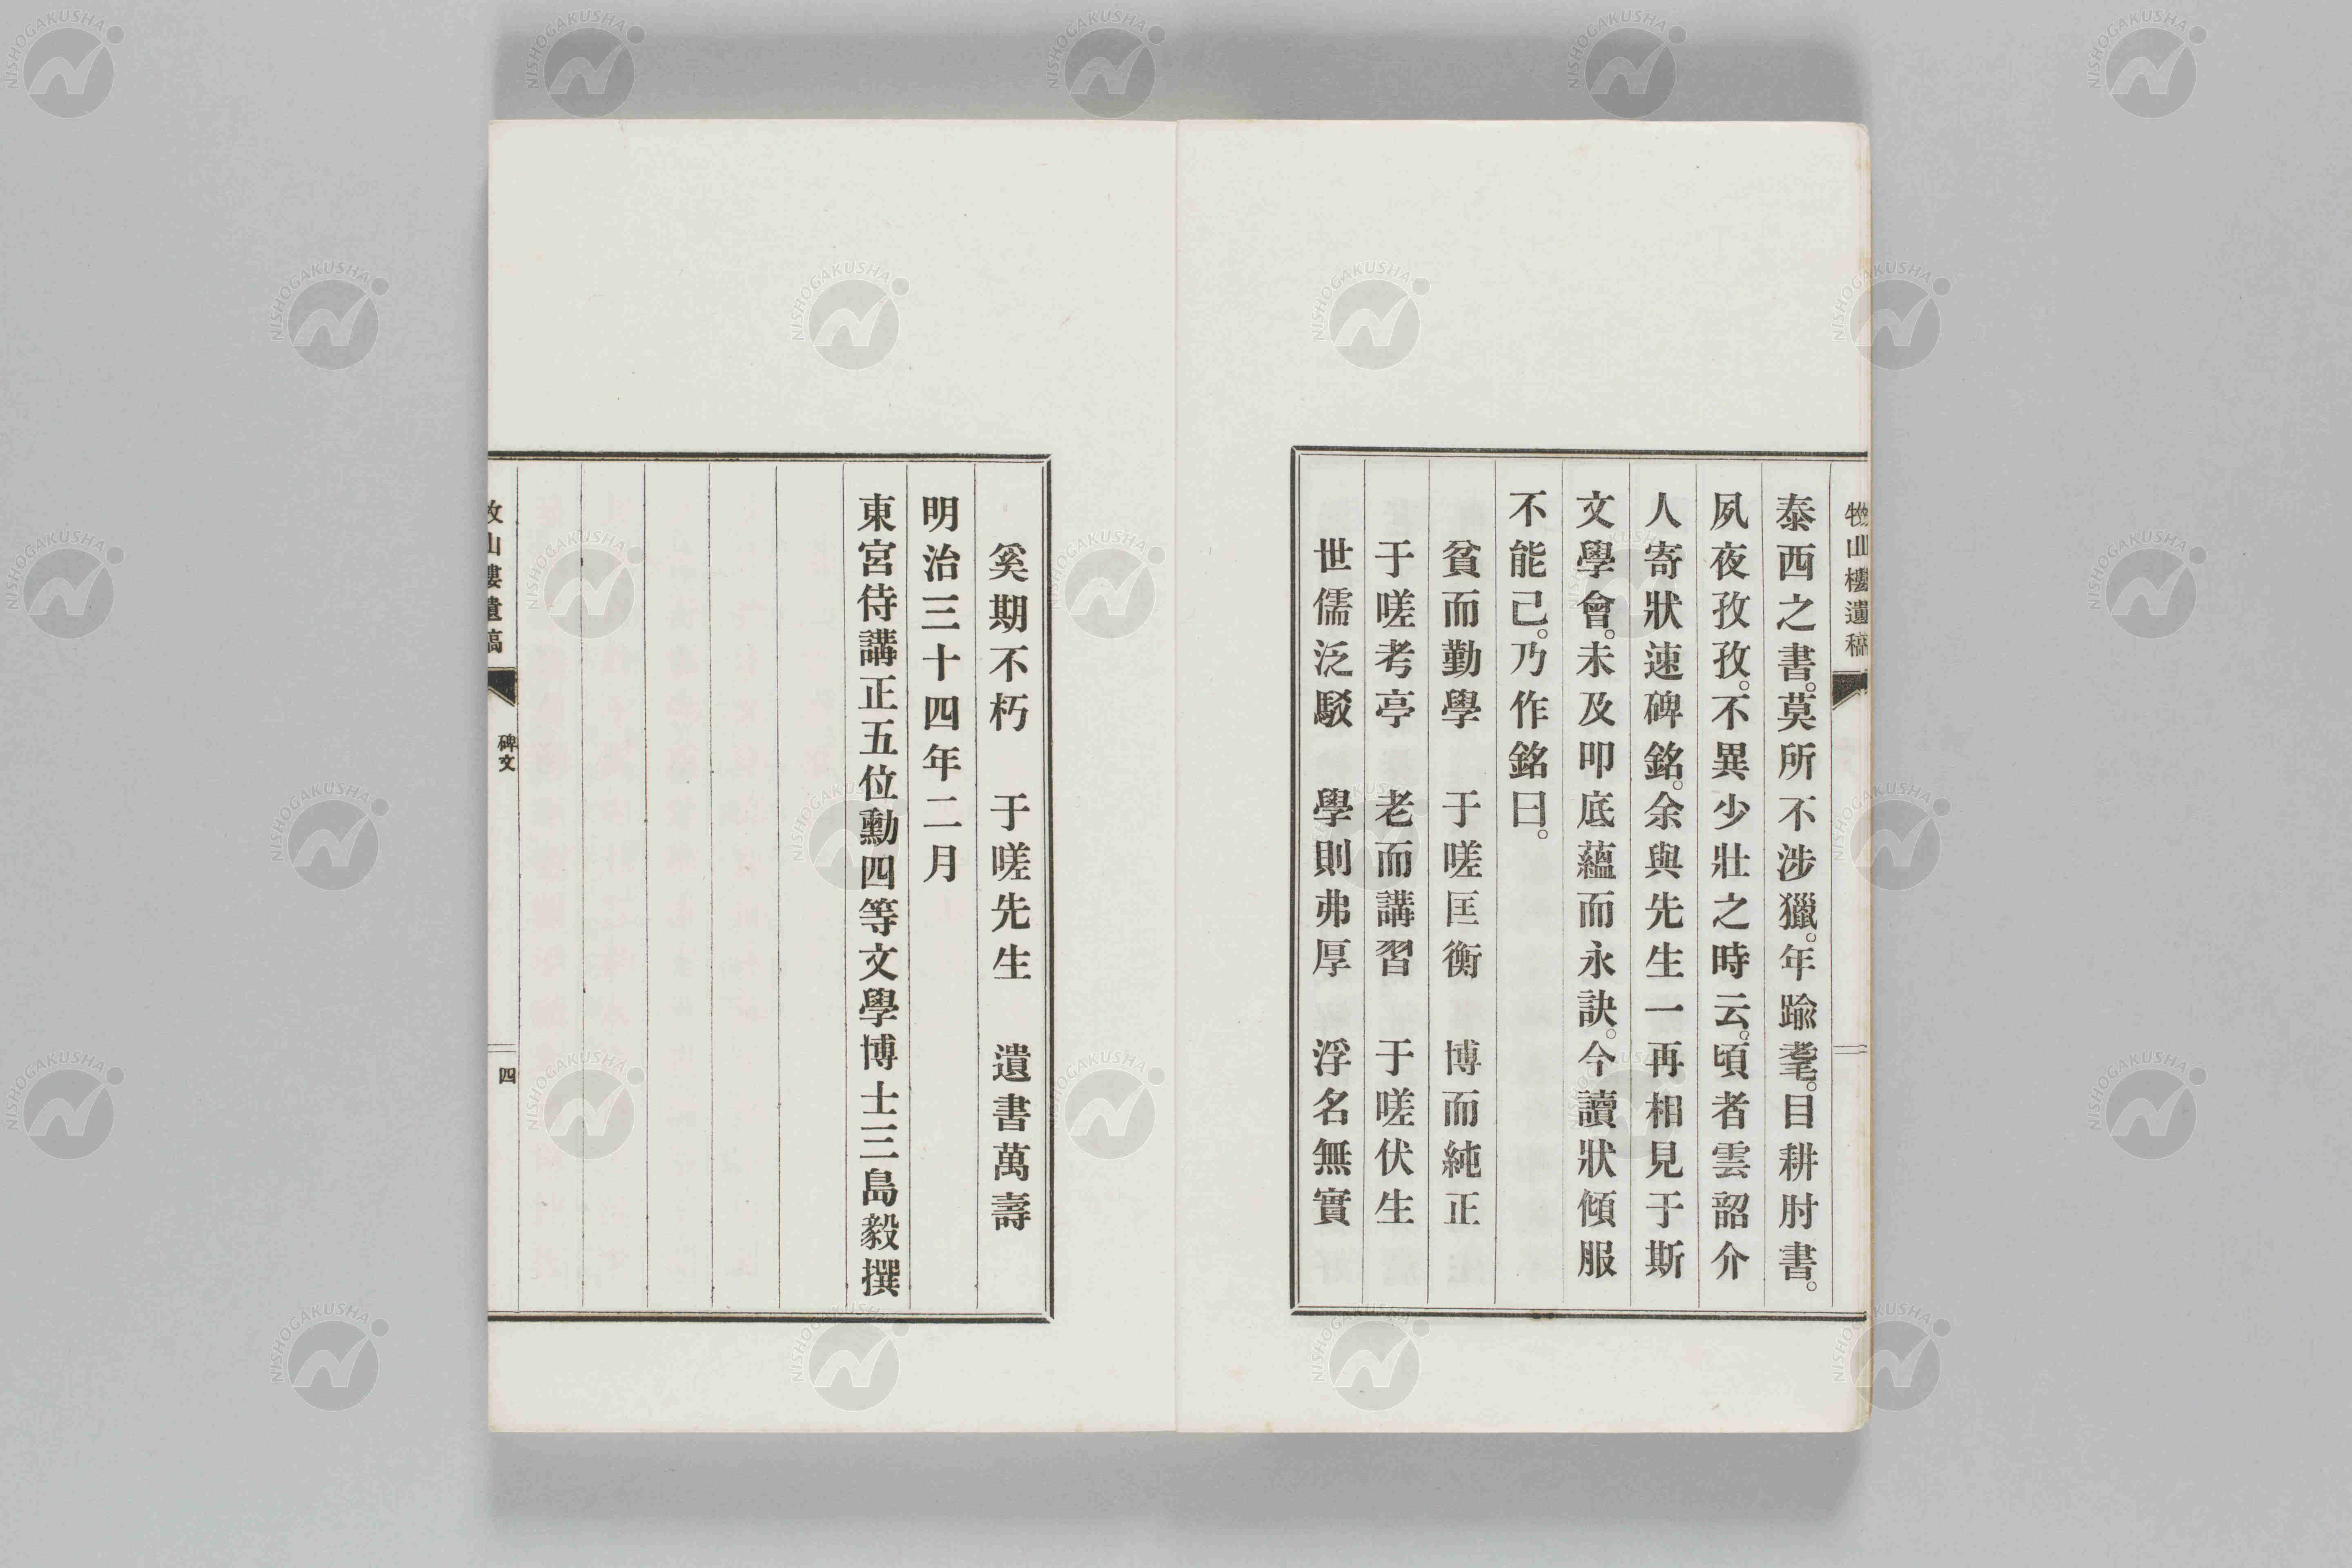 牧山樓遺稿
泰西之書。莫所不涉獵。年踰耄。目耕肘書。
夙夜孜孜。不異少壯之時云。頃者雲韶介
人寄狀速碑銘。余與先生一再相見于斯
文學會。未及叩底蘊而永訣。今讀狀傾服
不能己。乃作銘曰。
貧而勤學　于嗟匡衡　博而純正
于嗟考亭　老而講習　于嗟伏生
世儒泛駁　學則弗厚　浮名無實
奚期不朽　于嗟先生　遺書萬壽
明治三十四年二月
東宮侍講正五位勳四等文學博士三島毅撰
牧山樓遺稿
碑文
四
NISHOGAKUSHA